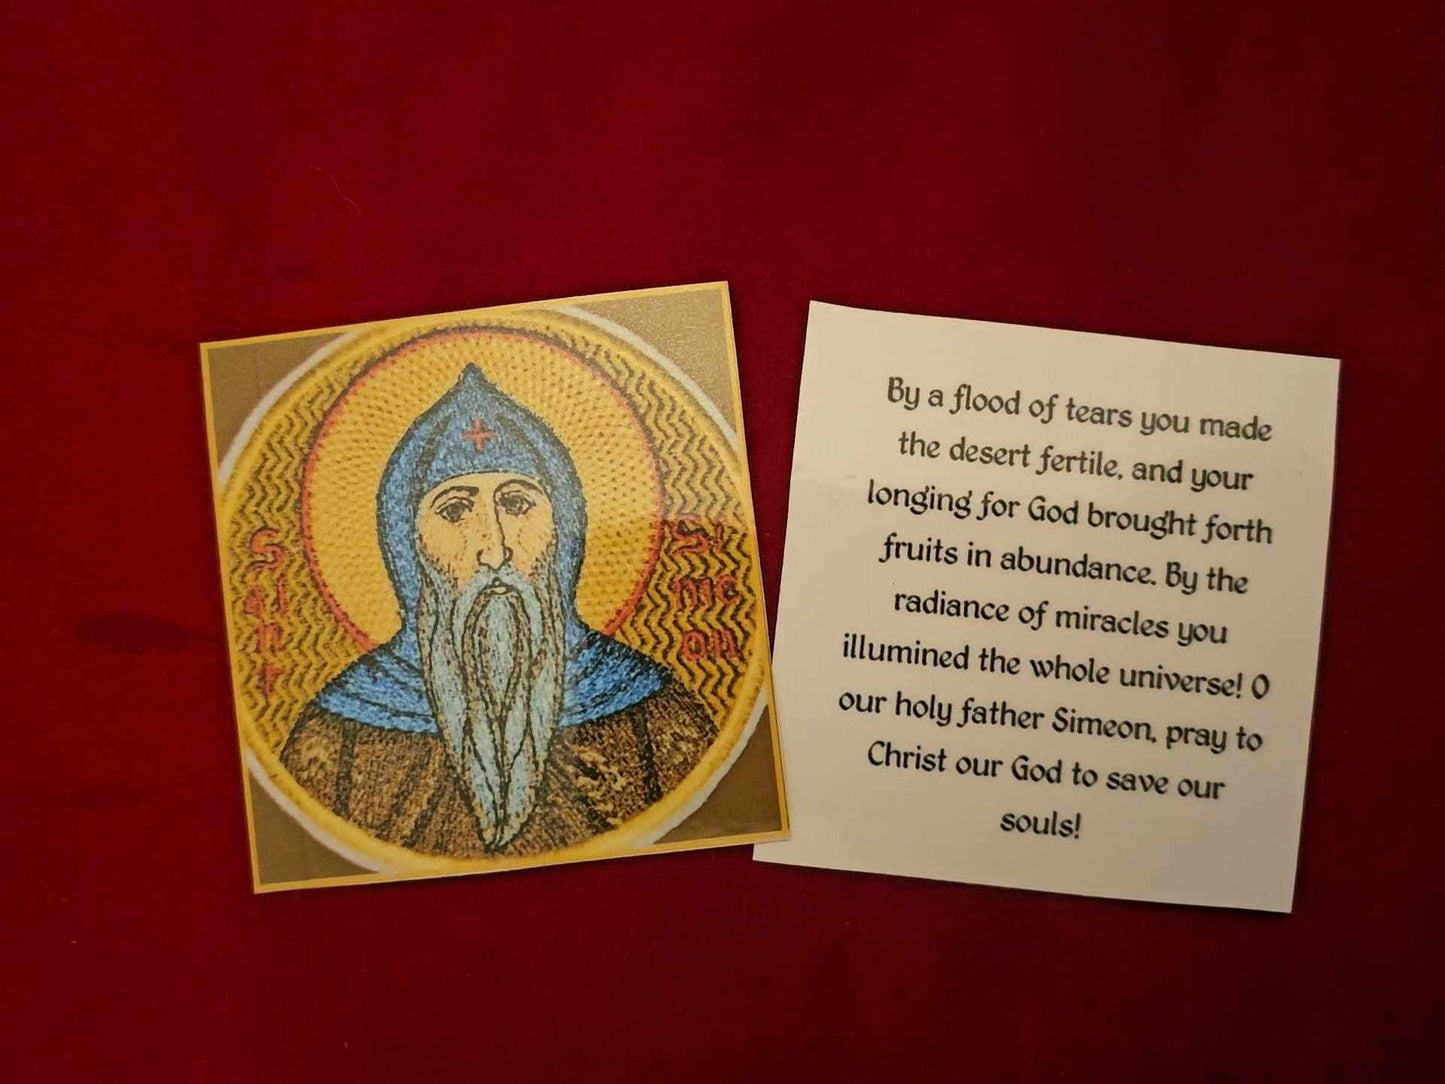 Saint
Simeon
By a flood of tears you made
the desert fertile, and your
longing for God brought forth
fruits in abundance. By the
radiance of miracles you
illumined the whole universe! O
our holy father Simeon, pray to
Christ our God to save our
souls!